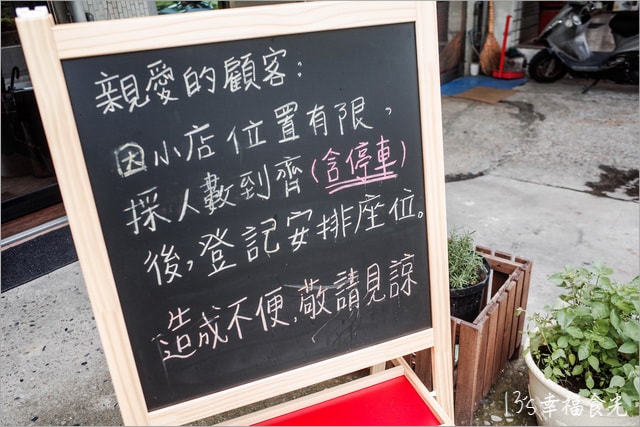 親愛的顧客：
因小店位置有限，
採人數到齊(含停車)
後，登記安排座位。
造成不便，敬請見諒
13's幸福食光